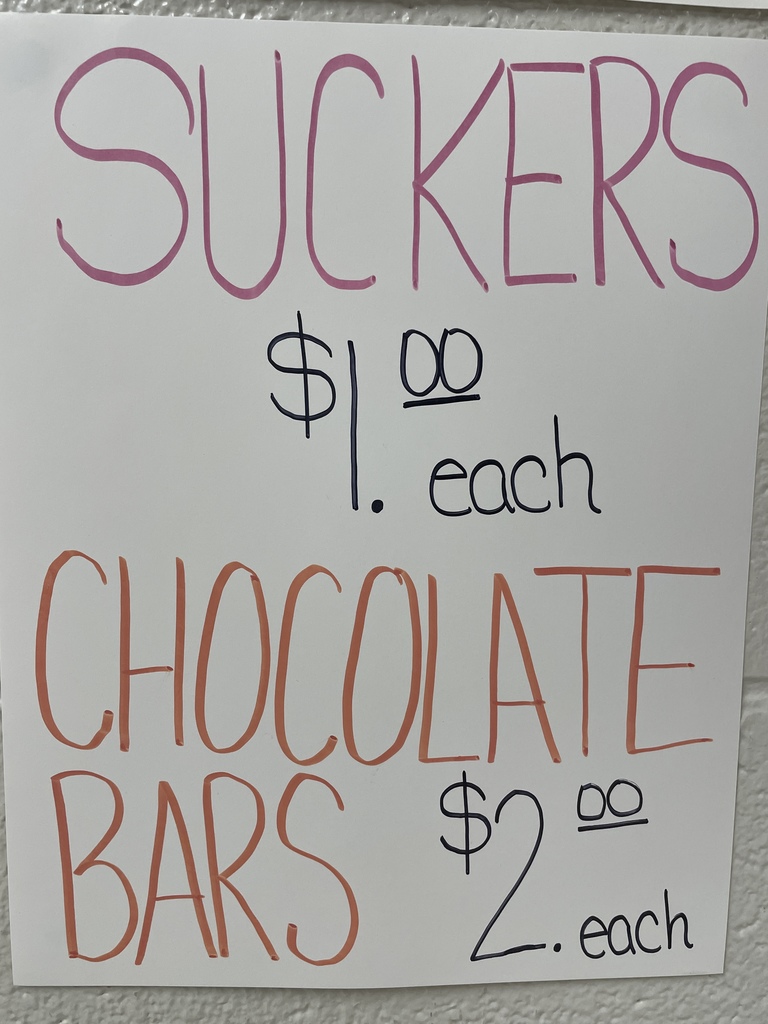 SUCKERS
$1.00 each
CHOCOLATE
BARS $2.00 each